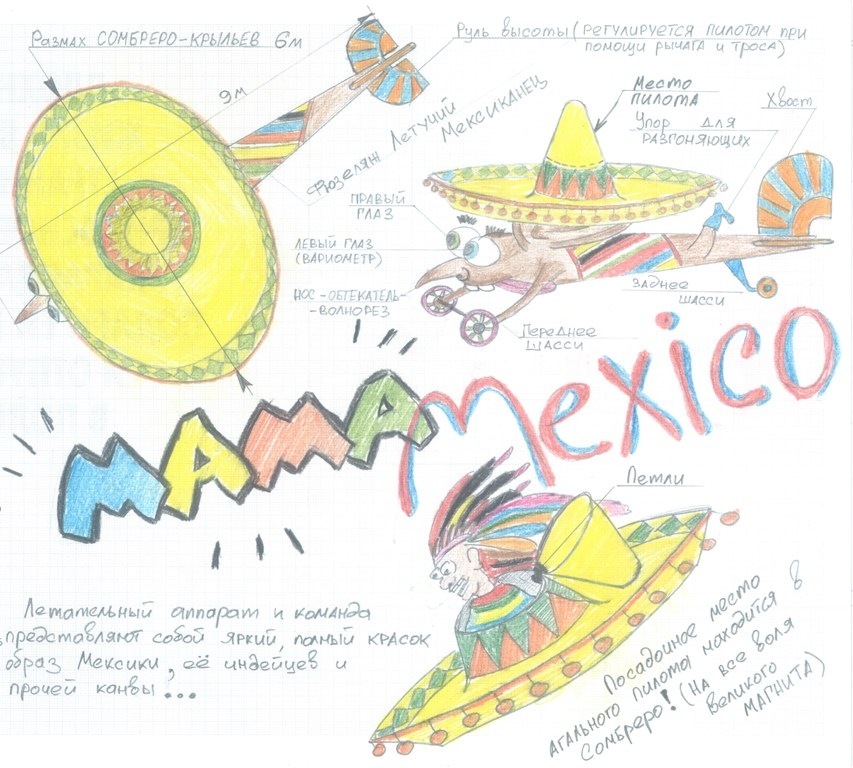 Размах СОМБРЕРО-КРЫЛЬЕВ 6м
9м
Руль высоты (РЕГУЛИРУЕТСЯ ПИЛОТОМ ПРИ
ПОМОЩИ РЫЧАГА И ТРОСА)
Фюзеляж Летучий
Мексиканец
Место
ПИЛОТА
Упор для
РАЗГОНЯЮЩИХ
Хвост
ПРАВЫЙ
ГЛАЗ
ЛЕВЫЙ ГЛАЗ
(ВАРИОМЕТР)
НОС-ОБТЕКАТЕЛЬ-
-ВОЛНОРЕЗ
ПЕРЕДНЕЕ
ШАССИ
ЗАДНЕЕ
ШАССИ
МАМА Mexico
Петли
Летательный аппарат и команда
представляют собой яркий, полный красок
образ Мексики, её индейцев и
прочей канвы...
Посадочное место
агального пилота находится в
Сомбреро! (НА все воля
великого
МАГНИТА)